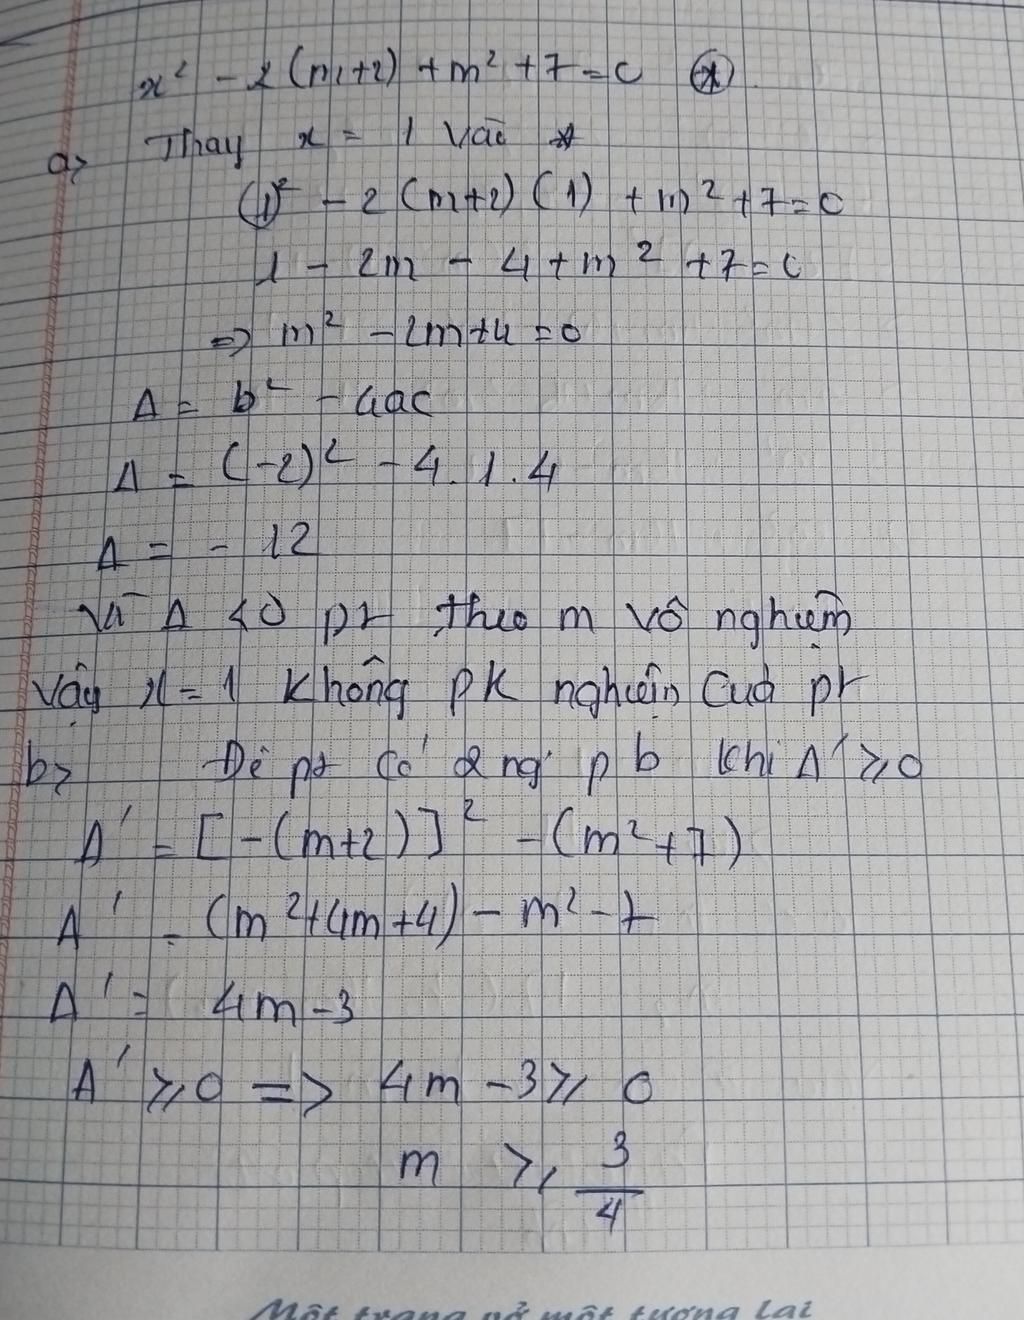 x² - 2(m+2) + m² + 7 = 0 (*)
a> Thay x = 1 vào *
(1)² - 2(m+2)(1) + m² + 7 = 0
1 - 2m - 4 + m² + 7 = 0
=> m² - 2m + 4 = 0
Δ = b² - 4ac
Δ = (-2)² - 4.1.4
Δ = - 12
Vì Δ < 0 pt theo m vô nghiệm
Vậy x = 1 không pk nghiệm của pt
b> Để pt có 2 ng pb khi Δ' ≥ 0
Δ' = [-(m+2)]² - (m² + 7)
Δ' = (m² + 4m + 4) - m² - 7
Δ' = 4m - 3
Δ' ≥ 0 => 4m - 3 ≥ 0
m ≥ 3/4
Một trang vở một tương lai